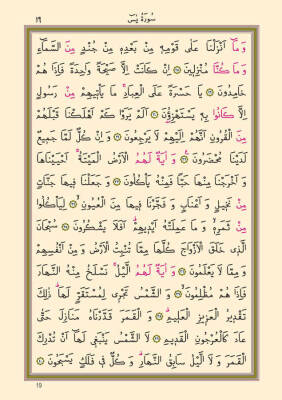 ١٩ سُورَةُ يٰسٓ
وَ مَٓا اَنْزَلْنَا عَلٰى قَوْمِهٖ مِنْ بَعْدِهٖ مِنْ جُنْدٍ مِنَ السَّمَٓاءِ
وَ مَا كُنَّا مُنْزِلٖينَ ﴿٢٨﴾ اِنْ كَانَتْ اِلَّا صَيْحَةً وَاحِدَةً فَاِذَا هُمْ
خَامِدُونَ ﴿٢٩﴾ يَا حَسْرَةً عَلَى الْعِبَادِۚ مَا يَاْتٖيهِمْ مِنْ رَسُولٍ
اِلَّا كَانُوا بِهٖ يَسْتَهْزِؤُ۫نَ ﴿٣٠﴾ اَلَمْ يَرَوْا كَمْ اَهْلَكْنَا قَبْلَهُمْ
مِنَ الْقُرُونِ اَنَّهُمْ اِلَيْهِمْ لَا يَرْجِعُونَ ﴿٣١﴾ وَ اِنْ كُلٌّ لَمَّا جَمٖيعٌ
لَدَيْنَا مُحْضَرُونَ ﴿٣٢﴾ وَ اٰيَةٌ لَهُمُ الْاَرْضُ الْمَيْتَةُۚ اَحْيَيْنَاهَا
وَ اَخْرَجْنَا مِنْهَا حَبًّا فَمِنْهُ يَاْكُلُونَ ﴿٣٣﴾ وَ جَعَلْنَا فٖيهَا جَنَّاتٍ
مِنْ نَخٖيلٍ وَ اَعْنَابٍ وَ فَجَّرْنَا فٖيهَا مِنَ الْعُيُونِ ﴿٣٤﴾ لِيَاْكُلُوا
مِنْ ثَمَرِهٖ وَ مَا عَمِلَتْهُ اَيْدٖيهِمْ اَفَلَا يَشْكُرُونَ ﴿٣٥﴾ سُبْحَانَ
الَّذٖي خَلَقَ الْاَزْوَاجَ كُلَّهَا مِمَّا تُنْبِتُ الْاَرْضُ وَ مِنْ اَنْفُسِهِمْ
وَ مِمَّا لَا يَعْلَمُونَ ﴿٣٦﴾ وَ اٰيَةٌ لَهُمُ الَّيْلُۚ نَسْلَخُ مِنْهُ النَّهَارَ
فَاِذَا هُمْ مُظْلِمُونَ ﴿٣٧﴾ وَ الشَّمْسُ تَجْرٖي لِمُسْتَقَرٍّ لَهَا ذٰلِكَ
تَقْدٖيرُ الْعَزٖيزِ الْعَلٖيمِ ﴿٣٨﴾ وَ الْقَمَرَ قَدَّرْنَاهُ مَنَازِلَ حَتّٰى
عَادَ كَالْعُرْجُونِ الْقَدٖيمِ ﴿٣٩﴾ لَا الشَّمْسُ يَنْبَغٖي لَهَٓا اَنْ تُدْرِكَ
الْقَمَرَ وَ لَا الَّيْلُ سَابِقُ النَّهَارِ وَ كُلٌّ فٖي فَلَكٍ يَسْبَحُونَ ﴿٤٠﴾
19